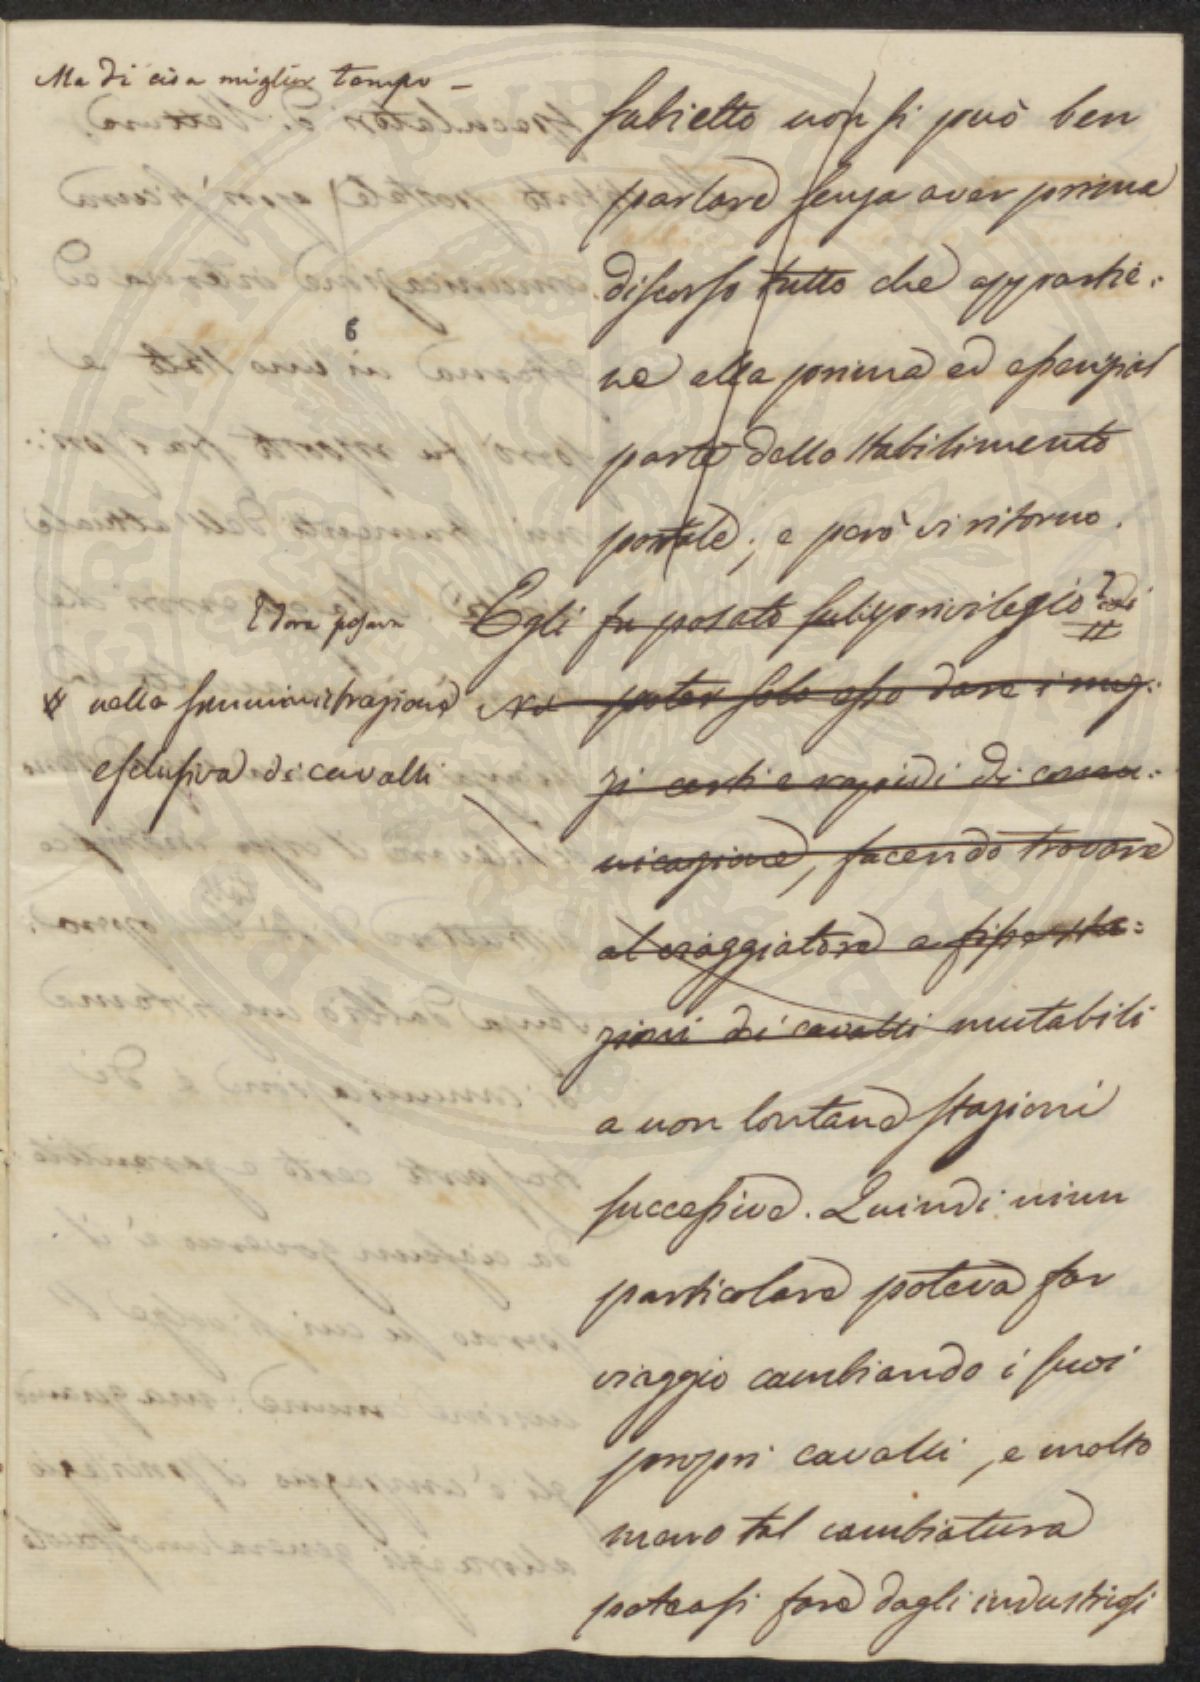 Ma di ciò a miglior tempo –
subietto non si può ben
parlare senza aver prima
discorso tutto che appartie:
ne alla prima ed essenzial
parte dello stabilimento
postale; e però vi ritorno.
Egli fu posato sul privilegio di
Ed ora posava
nella somministrazione
esclusiva di cavalli
poter solo esso dare i mez:
zi certi e rapidi di comu:
nicazione, facendo trovare
al viaggiatore a fisse sta:
zioni dei cavalli mutabili
a non lontane stazioni
successive. Quindi niun
particolare poteva far
viaggio cambiando i suoi
propri cavalli, e molto
meno tal cambiatura
poteasi fare dagli industriosi
6